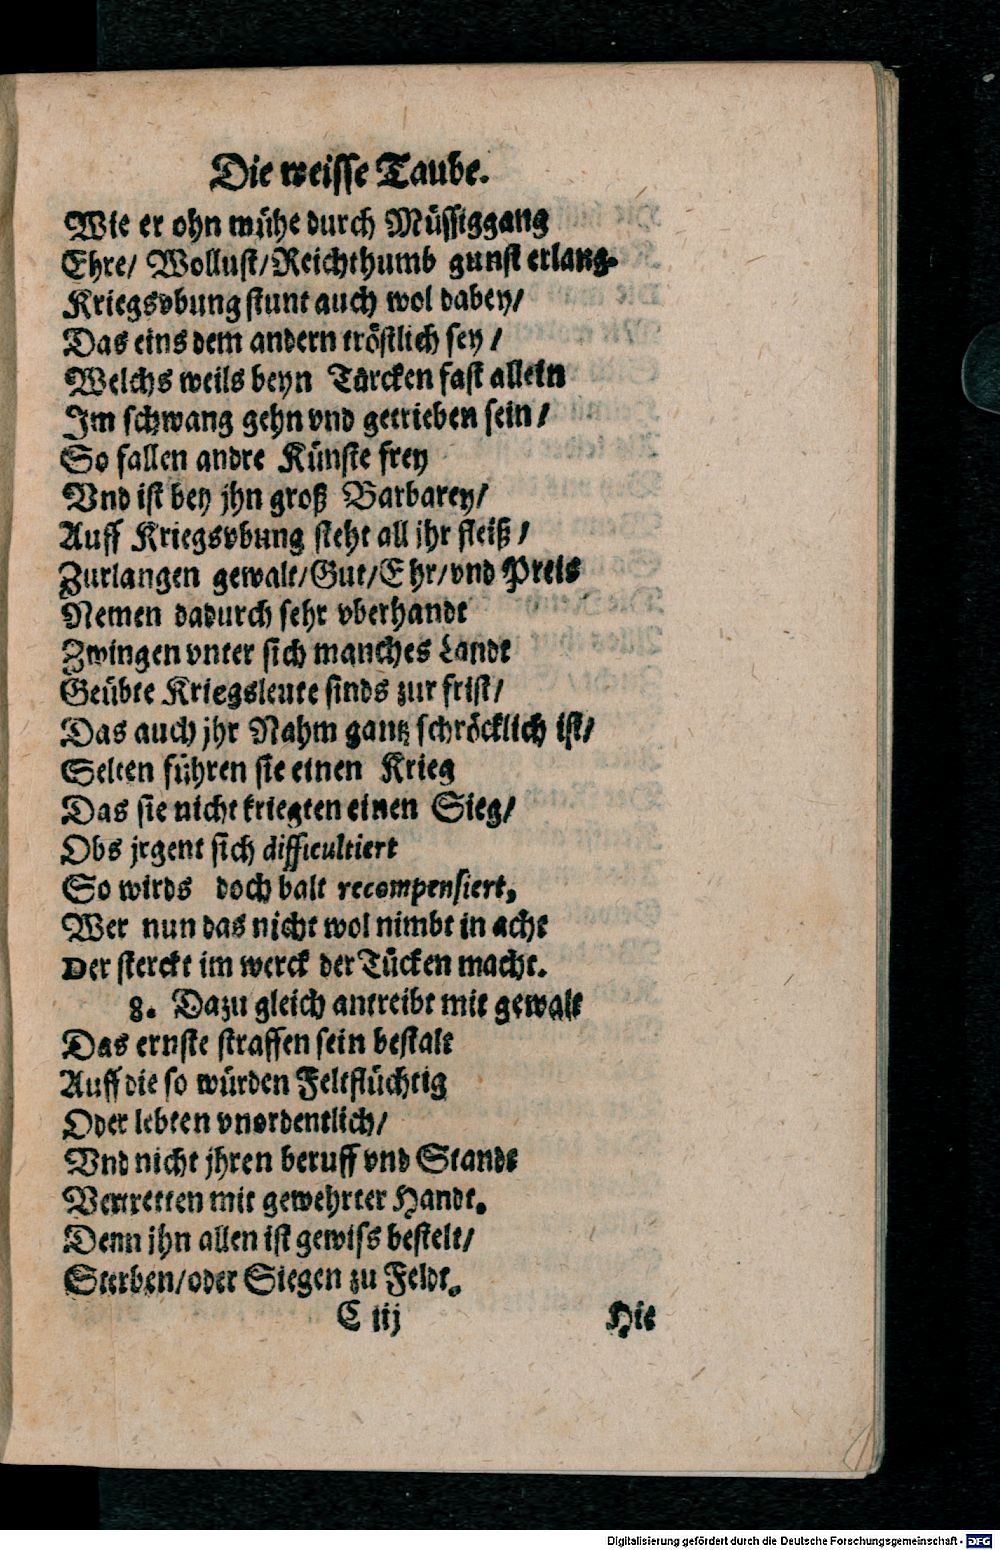 Die weisse Taube.
Wie er ohn mühe durch Müssiggang
Ehre/ Wollust/Reichthumb gunst erlang.
Kriegsvbung stunt auch wol dabey/
Das eins dem andern tröstlich sey /
Welchs weils beyn Türcken fast allein
Im schwang gehn vnd getrieben sein /
So fallen andre Künste frey
Vnd ist bey jhn groß Barbarey/
Auff Kriegsvbung steht all ihr fleiß /
Zurlangen gewalt/Gut/Ehr/vnd Preis
Nemen dadurch sehr vberhandt
Zwingen vnter sich manches Landt
Geübte Kriegsleute sinds zur frist/
Das auch jhr Nahm gantz schröcklich ist/
Selten führen sie einen Krieg
Das sie nicht kriegten einen Sieg/
Obs jrgent sich difficultiert
So wirds doch balt recompensiert,
Wer nun das nicht wol nimbt in acht
Der sterckt im werck der Tücken macht.
8. Dazu gleich antreibt mit gewalt
Das ernste straffen sein bestalt
Auff die so würden Feltflüchtig
Oder lebten vnordentlich/
Vnd nicht jhren beruff vnd Standt
Vertretten mit gewehrter Handt.
Denn ihn allen ist gewiss bestelt/
Sterben/oder Siegen zu Feldt.
C iij Hie
Digitalisierung gefördert durch die Deutsche Forschungsgemeinschaft - DFG